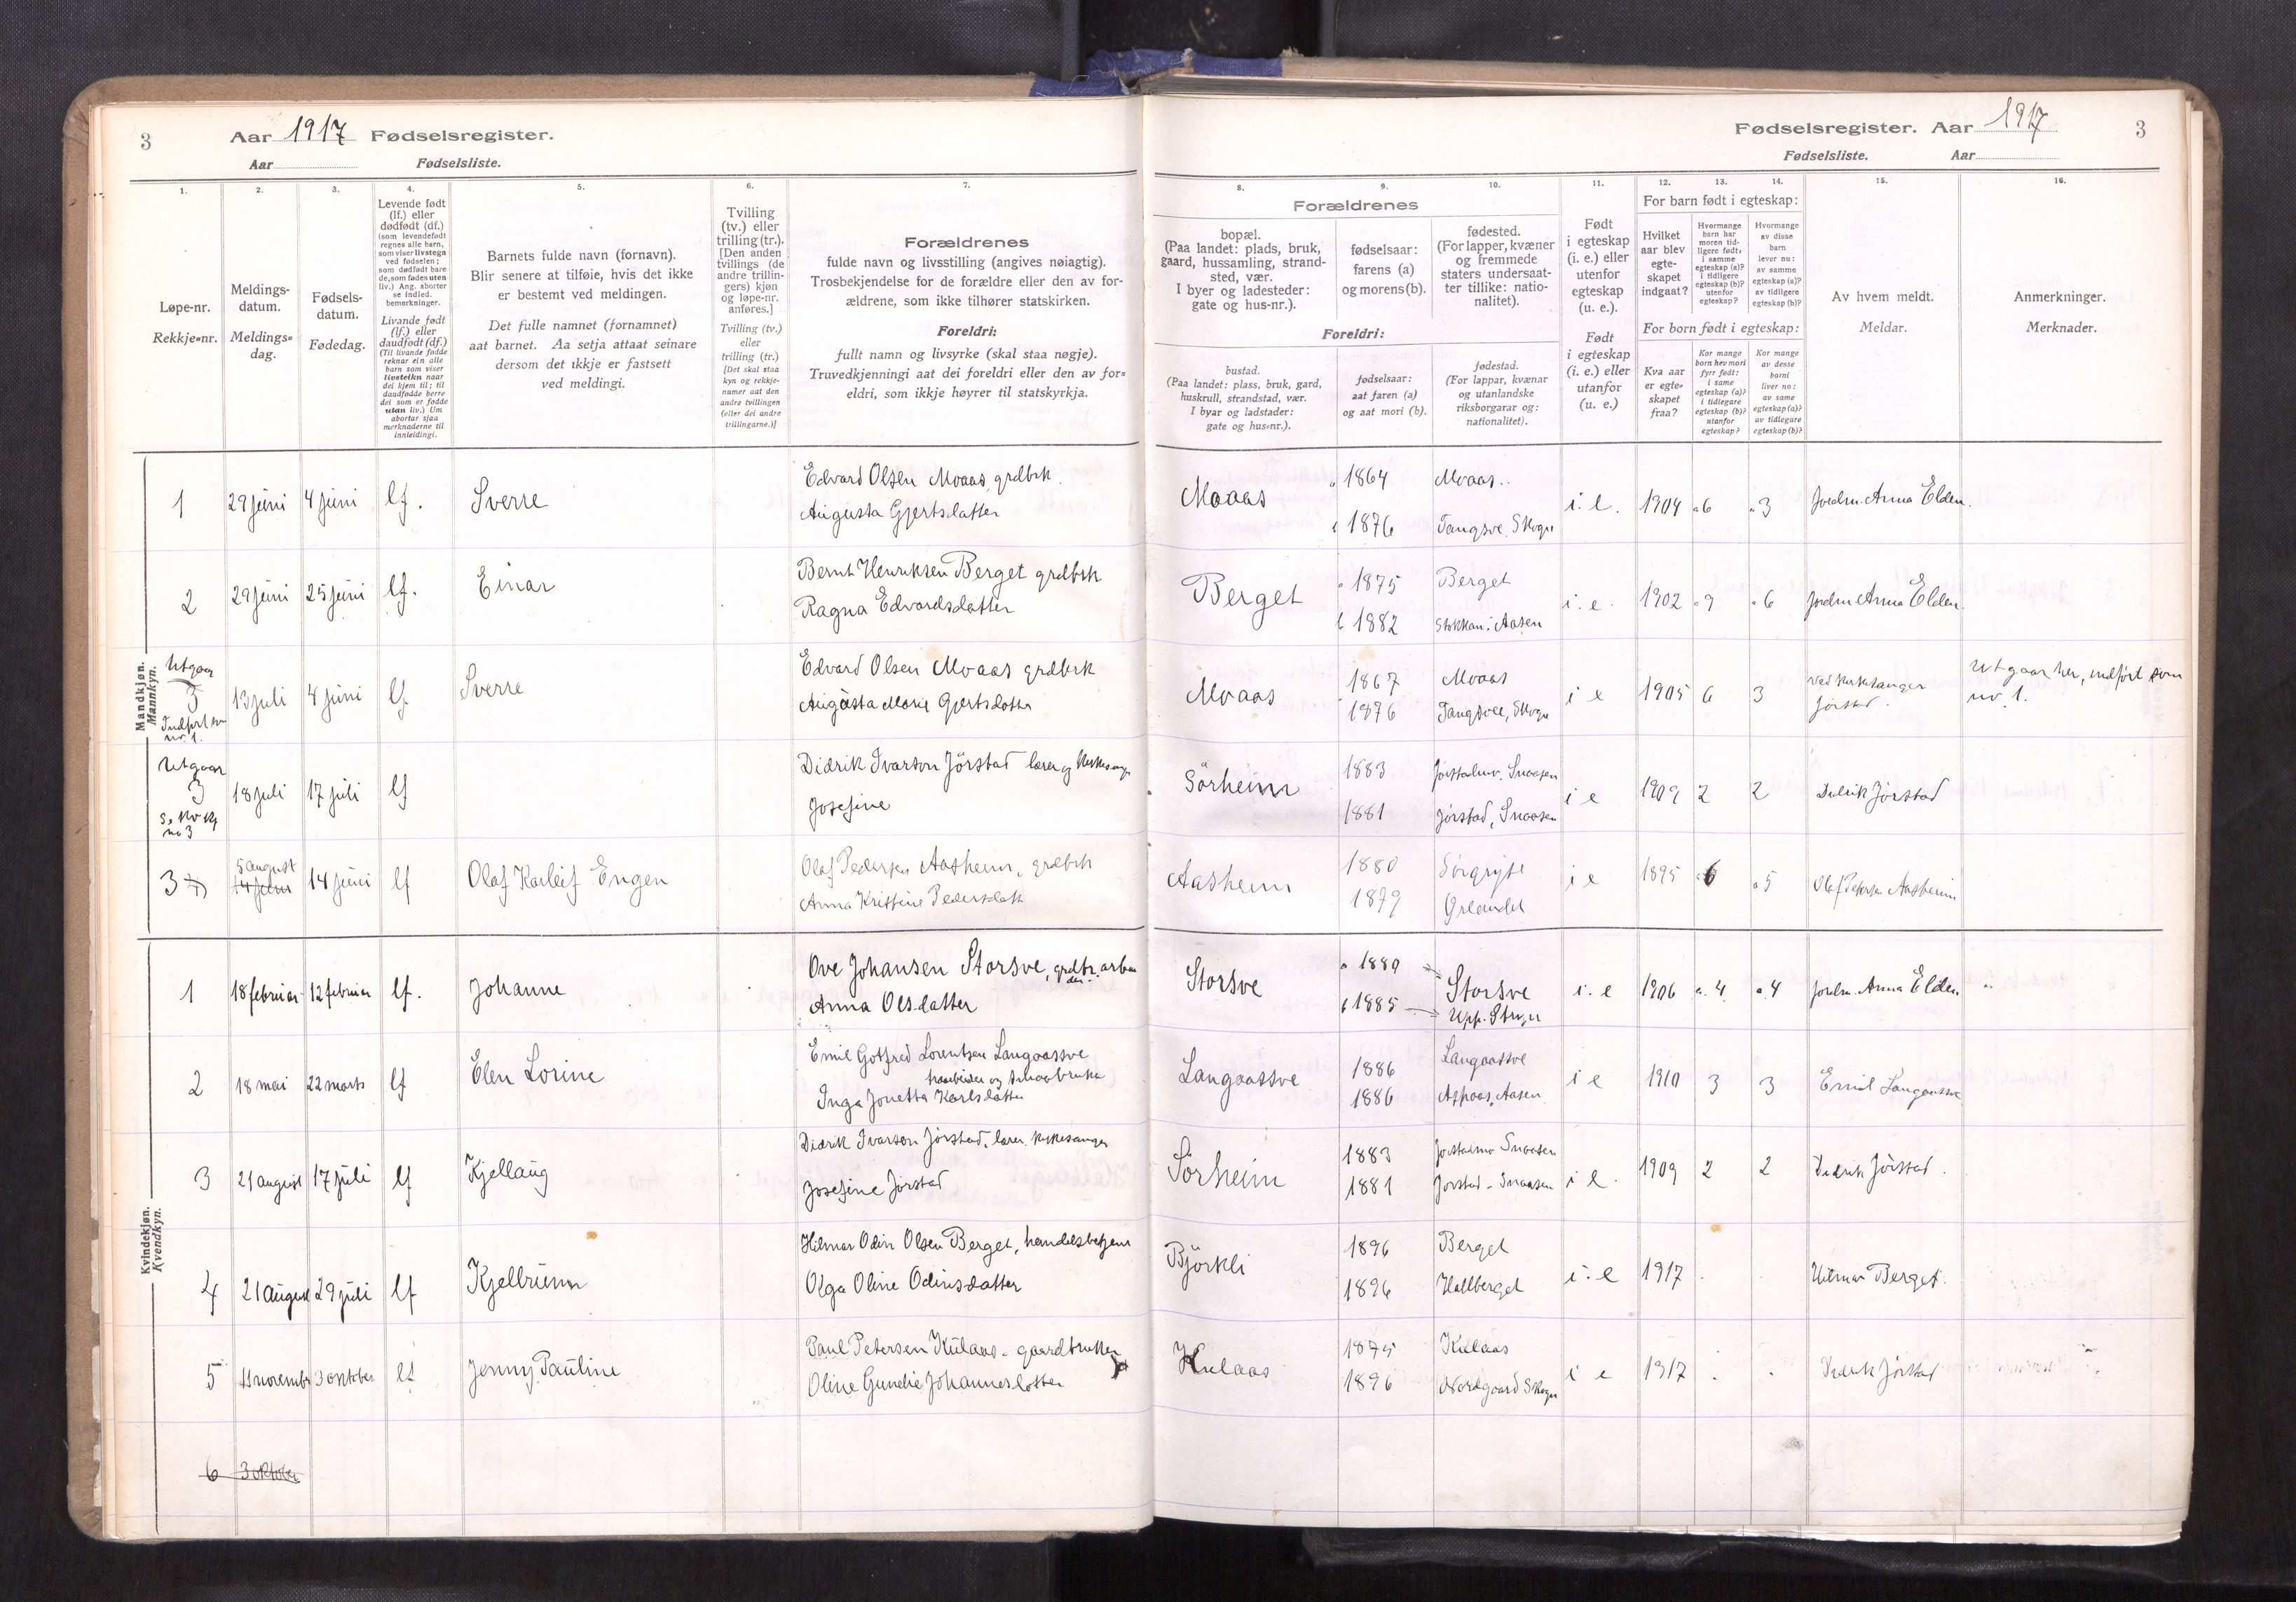 3 Aar 1917 Fødselsregister.
Aar Fødselsliste.
1. 2. 3. 4. 5. 6. 7.
Løpe-nr.
Rekkje=nr.
Meldings-
datum.
Meldings=
dag.
Fødsels-
datum.
Fødedag.
Levende født
(lf.) eller
dødfødt (df.)
(som levendefødt
regnes alle barn,
som viser livstegn
ved fødselen;
som dødfødt bare
de, som fødes uten
liv.) Ang. aborter
se indled.
bemerkninger.
Livande født
(lf.) eller
daudfødt (df.)
(Til livande fødde
reknar ein alle
barn som viser
livsteikn naar
dei kjem til; til
daudfødde berre
dei som er fødde
utan liv.) Um
abortar sjaa
merknaderne til
innleidingi.
Barnets fulde navn (fornavn).
Blir senere at tilføie, hvis det ikke
er bestemt ved meldingen.
Det fulle namnet (fornamnet)
aat barnet. Aa setja attaat seinare
dersom det ikkje er fastsett
ved meldingi.
Tvilling
(tv.) eller
trilling (tr.).
[Den anden
tvillings (de
andre trillin-
gers) kjøn
og løpe-nr.
anføres.]
Tvilling (tv.)
eller
trilling (tr.)
[Det skal staa
kyn og rekkje-
numer aat den
andre tvillingen
(eller dei andre
trillingarne.)]
Forældrenes
fulde navn og livsstilling (angives nøiagtig).
Trosbekjendelse for de forældre eller den av for-
ældrene, som ikke tilhører statskirken.
Foreldri:
fullt namn og livsyrke (skal staa nøgje).
Truvedkjenningi aat dei foreldri eller den av for=
eldri, som ikkje høyrer til statskyrkja.
Mandkjøn.
Mannkyn.
1 29 juni 4 juni lf. Sverre
Edvard Olsen Moaas, grdbrk.
Augusta Gjertsdatter
2 29 juni 25 juni lf. Einar
Bernt Henriksen Berget grdbrk
Ragna Edvardsdatter
Utgaar
3 13 juli 4 juni lf Sverre
Indført som
nr. 1.
Edvard Olsen Moaas grdbrk
Augusta Marie Gjertsdatter
Utgaar
3 18 juli 17 juli lf
no 3
Didrik Ivarson Jörstad lærer og kirkesanger
Josefine
5 august
3 14 juni 14 juni lf Olaf Karleif Engen
Olaf Pedersen Aasheim, grdbrk
Anna Kristine Pedersdatt
Kvindekjøn.
Kvendkyn.
1 18 februar 12 februar lf. Johanne
Ove Johansen Storsve, grdbr. arbei
der.
Anna Olsdatter
2 18 mai 22 marts lf Elen Lorine
Emil Gotfred Lorentsen Langaassve
Inga Jonetta Karlsdatter
3 21 august 17 juli lf Kjellaug
Didrik Ivarson Jörstad, lærer, kirkesanger
Josefine Jörstad
4 21 august 29 juli lf Kjellrunn
Hilmar Odin Olsen Berget, handelsbetjent
Olga Oline Odinsdatter
5 11 november 3 oktober lf Jenny Pauline
Paul Petersen Kulaas - gaardbruker
Oline Gundie Johannesdotter
6 3 oktober
Fødselsregister. Aar 1917 3
Fødselsliste. Aar
8. 9. 10. 11. 12. 13. 14. 15. 16.
Forældrenes
bopæl.
(Paa landet: plads, bruk,
gaard, hussamling, strand-
sted, vær.
I byer og ladesteder:
gate og hus-nr.).
fødselsaar:
farens (a)
og morens (b).
fødested.
(For lapper, kvæner
og fremmede
staters undersaat-
ter tillike: natio-
nalitet).
Foreldri:
bustad.
(Paa landet: plass, bruk, gard,
huskrull, strandstad, vær.
I byar og ladstader:
gate og hus=nr.).
fødselsaar:
aat faren (a)
og aat mori (b).
fødestad.
(For lappar, kvænar
og utanlandske
riksborgarar og:
nationalitet).
Født
i egteskap
(i. e.) eller
utenfor
egteskap
(u. e.).
Født
i egteskap
(i. e.) eller
utanfor
(u. e.)
For barn født i egteskap:
Hvilket
aar blev
egte-
skapet
indgaat?
Hvormange
barn har
moren tid-
ligere født:
i samme
egteskap (a)?
i tidligere
egteskap (b)?
utenfor
egteskap?
Hvormange
av disse
barn
lever nu:
av samme
egteskap (a)?
av tidligere
egteskap (b)?
For born født i egteskap:
Kva aar
er egte=
skapet
fraa?
Kor mange
born hev mori
fyrr født:
i same
egteskap (a)?
i tidlegare
egteskap (b)?
utanfor
egteskap?
Kor mange
av desse
borni
liver no:
av same
egteskap (a)?
av tidlegare
egteskap (b)?
Av hvem meldt.
Meldar.
Anmerkninger.
Merknader.
Moaas a 1864 Moaas.. i. e. 1904 a 6 a 3 Jordm. Anna Elden.
b 1876 Tangsve, Skogn
Berget a 1875 Berget i. e. 1902 a 9 a 6 Jordm. Anna Elden.
b 1882 Stokkan i Aasen
Moaas 1867 Moaas i e 1905 6 3 ved kirkesanger
1876 Tangsvee, Skogn Jörstad.
Utgaar her, indført som
nr. 1.
Sörheim 1883 Jørstadmo. Snaasen i e 1909 2 2 Didrik Jörstad
1881 Jörstad, Snaasen
Aasheim 1880 i e 1895 6 a 5 Olaf Pedersen Aasheim
1879
Storsve a 1880 Storsve i. e 1906 a. 4 a. 4 Jordm. Anna Elden
b 1885 Upp. Skogn
Langaassve 1886 Langaassve i e 1910 3 3 Emil Langaassve
1886 Aspaas, Aasen
Sörheim 1883 Jørstadmo Snaasen i e. 1909 2 2 Didrik Jörstad.
1881 Jorstad - Snaasen
Björkli 1896 Berget i. e 1917 Hilmar Berget.
1896 Hallberget
Kulaas 1875 Kulaas i e 1917 Didrik Jörstad
1896 Nordgaard Skogn